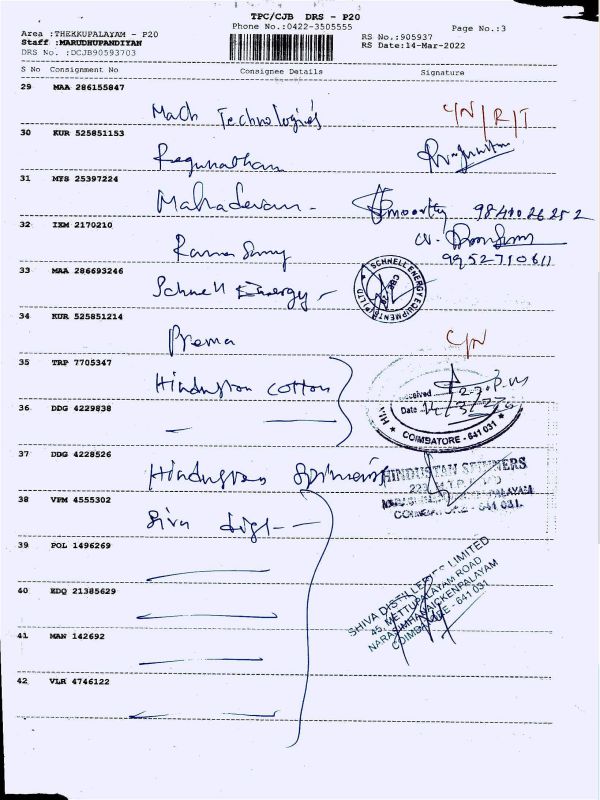 TPC/CJB DRS - P20
Phone No.:0422-3505555
Page No.:3
Area :THEKKUPALAYAM - P20
Staff :MARUDHUPANDIYAN
DRS No. :DCJB90593703
RS No.:905937
RS Date:14-Mar-2022
S No Consignment No Consignee Details Signature
29 MAA 286155847
Mach Technologies C/N/R/T
30 KUR 525851153
Regunathan
31 MTS 25397224
Mahadevan - moorthy 9841026252
32 IXM 2170210
Rama Samy
9952710611
33 MAA 286693246
Schnell Energy -
SCHNELL ENERGY EQUIPMENTS (P) LTD
34 KUR 525851214
Prema C/N
35 TRP 7705347
Hindustan cotton
Received 12-30 P.M
Date 14/3/22
36 DDG 4229838
COIMBATORE - 641 031
37 DDG 4228526
Hindustan Spinners
HINDUSTAN SPINNERS
COIMBATORE - 641 031.
38 VPM 4555302
Siva
39 POL 1496269
40 EDQ 21385629
SHIVA DISTILLERIES LIMITED
45, METTUPALAYAM ROAD
NARASIMHANAICKENPALAYAM
COIMBATORE - 641 031
41 MAN 142692
42 VLR 4746122